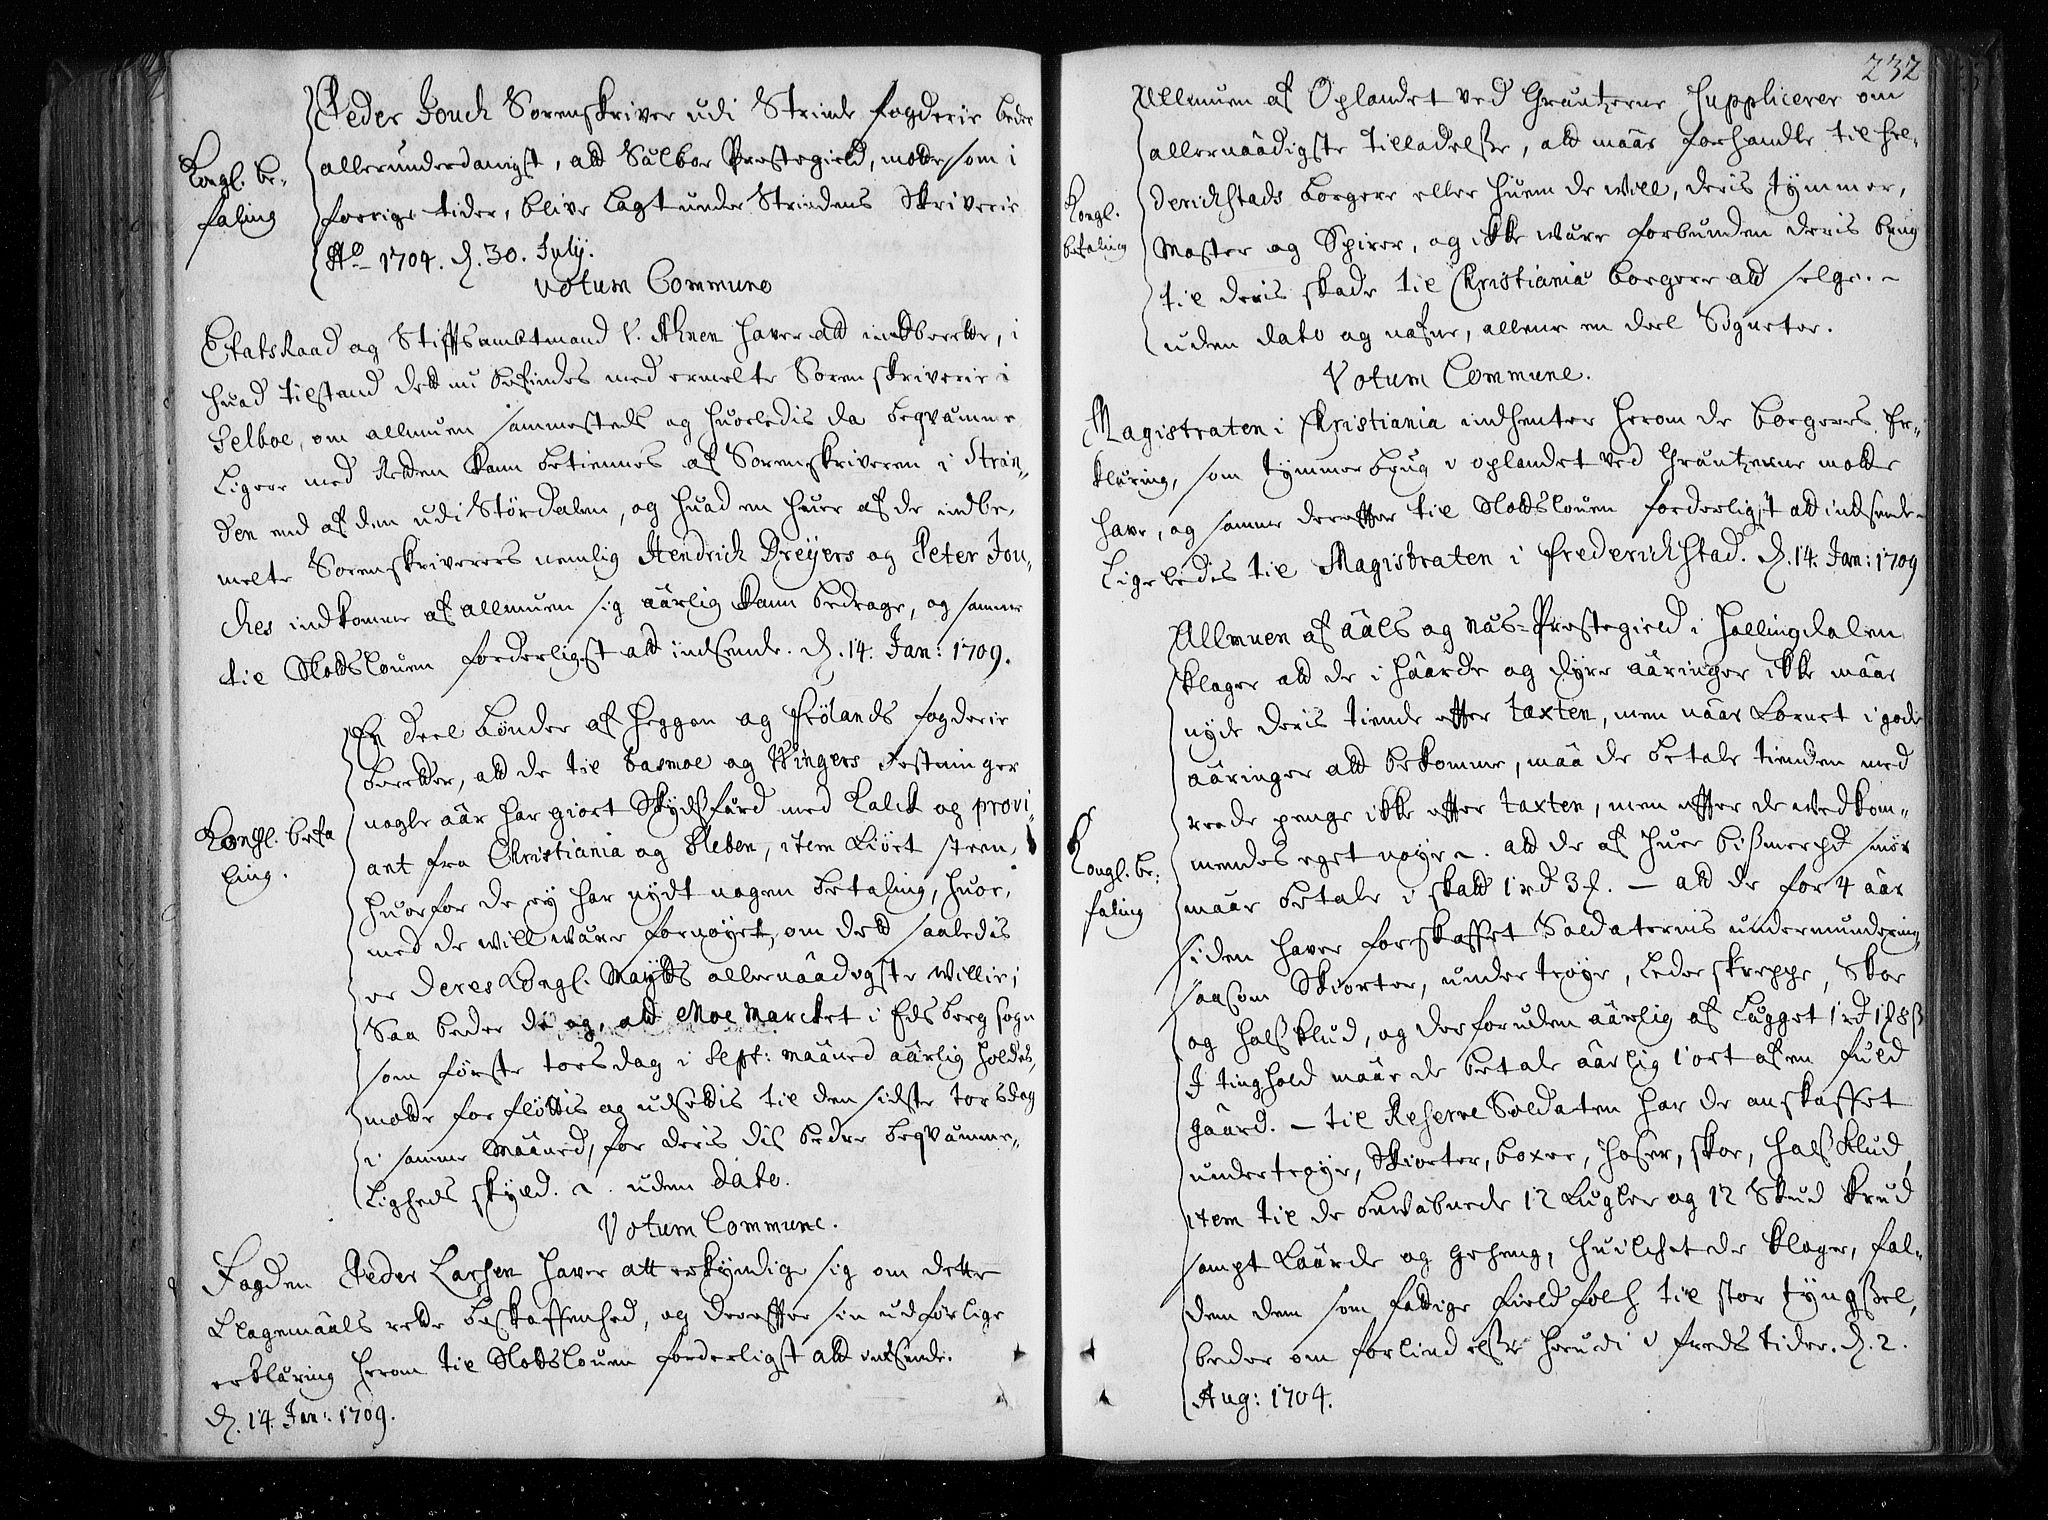 Peder Jouch Sorenskriver udi Strinde fogderie beder
allerunderdanigst, att Sælboe Præstegield, motte som i
forrige tider, blive Lagt under Strindens Skriverie
Ao 1704. d. 30. July.
Kongl. be-
faling
Votum Commune
Etats Raad og Stiftsambtmand V. Ahnen haver att indberette, i
huad tilstand dett nu befindes med ermelte Sorenskriverie i
Selboe, om allmuen sammesteds og huorledis da beqvemme-
ligere med Retten kann betiennes af Sorenskriveren i Strin-
den end af den udi Størdalen, og huad en huer af de indbe-
melte Sorenskriverers nemlig Hendrich Dreÿers og Peter Jou-
ches indkomme af allmuen sig aarlig kann bedrage, og samme
til Slotslouen forderligst att indsende. d. 14. Jan: 1709.
En deel bønder af Heggen og Frølands fogderie
beretter, att de til Basmoe og Wingers Festninger
nogle aar har giort Skydsfærd med Kalck og provi-
ant fra Christiania og Fleben, item kiørt steen,
huorfor de ey har nydt nogen betaling, huor-
med de will være fornøyet, om dett saaledis
er Deres Kongl. Maÿtts allernaadigste willie;
Saa beder de og, att Moe Marcket i Edsberg sogn
som første torsdag i Sept: maaned aarlig holdes,
motte forfløttis og udsettis til den sidste torsdag
i samme Maaned, for deris dis bedre beqvemme-
ligheds skyld. uden dato.
Kongl. befa
ling.
Votum Commune.
Fogden Peder Larssen haver att erkyndige sig om dette
Klagemaals rette beskaffenhed, og derefter sin udførlige
erklæring herom til Slotslouen forderligst att indsende.
d. 14. Jan: 1709.
232
Allmuen af Oplandet ved Grentzerne supplicerer om
allernaadigste tilladelse, att maae forhandle til Fre-
derichstads borgere eller huem de will, deris tymmer,
Master og Spirer, og ikke være forbunden deris brug
til deris skade til Christiania borgere att selge.
uden dato og nafne, allene en deel Signeter.
Kongl.
befaling
Votum Commune.
Magistraten i Christiania indhenter herom de borgeres er-
klæring, som tymmerbrug i oplandet ved Grentzerne motte
have, og samme derefter til Slotslouen forderligst att indsende
Ligeledis til Magistraten i Frederichstad. d. 14. Jan: 1709
Allmuen af Aals og Næs-Præstegield i Hallingdalen
klager att de i haarde og dyre aaringer ikke maae
nyde deris tiende efter taxten, men naar kornet i gode
aaringer att bekomme, maa de betale tienden med
reede penge ikke efter taxten, men efter de wedkom-
mendes eget nøye. att de af huer bismerpd smør
maae betale i skatt 1 rd 3 ß. - att de for 4 aar
siden haver forskaffet Soldaternis undermundering,
saasom Skiorter, undertrøye, Lederskreppe, Skoe
og halsklud, og desforuden aarlig af Lægget 1 rd 1 ß 8 ß
I tinghold maae de betale aarlig 1 ort af en fuld
gaard. - til Reserve Soldaten har de anskaffet
undertrøye, Skiorter, boxer, hoser, skoe, halsklud,
item til de bewæbnede 12 Kugler og 12 Skud Krud
sampt kaarde og geheng, huilchet de klager, fal-
den dem som fattige Fieldfolch til stor tyngsel,
beder om forlindelse herudi i freds tider. d. 2.
Aug: 1704.
Kongl. be-
faling